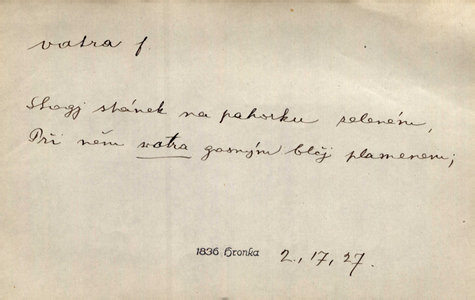 vatra f.
Stogj stánek na pahorku zeleném,
Při něm watra gasným blčj plamenem;
1836 Hronka 2, 17, 27.